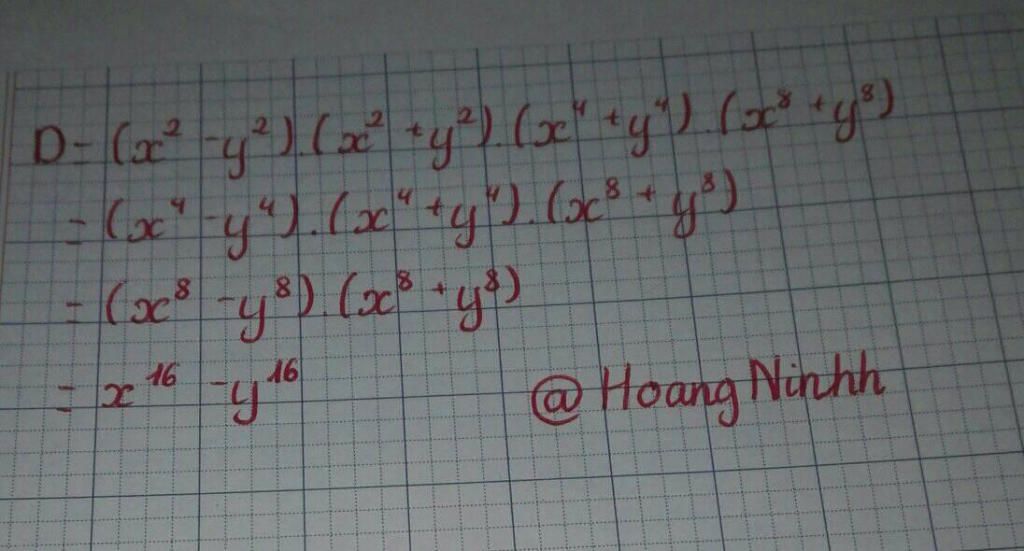 D = (x² - y²).(x² + y²).(x⁴ + y⁴).(x⁸ + y⁸)
= (x⁴ - y⁴).(x⁴ + y⁴).(x⁸ + y⁸)
= (x⁸ - y⁸).(x⁸ + y⁸)
= x¹⁶ - y¹⁶
@HoangNinhh